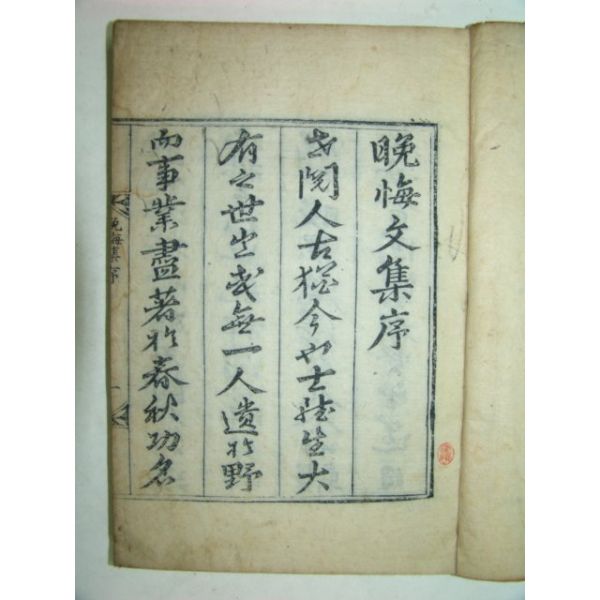 晚悔文集序
世閱人古猶今也士雖生大
有之世或無一人遺於野
而事業盡著於春秋功名
晚悔集序
一